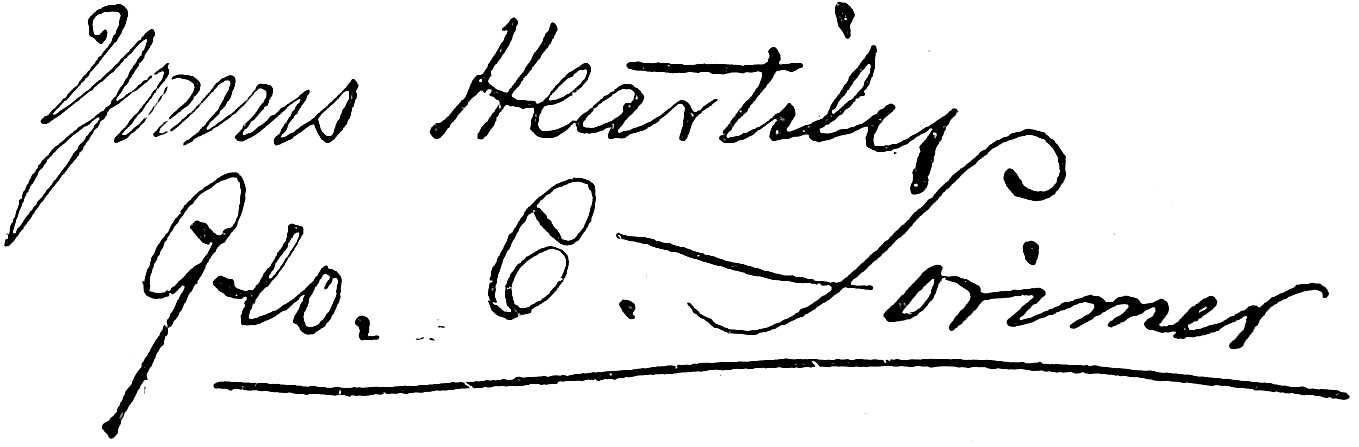 Yours Heartily
Geo. C. Lorimer